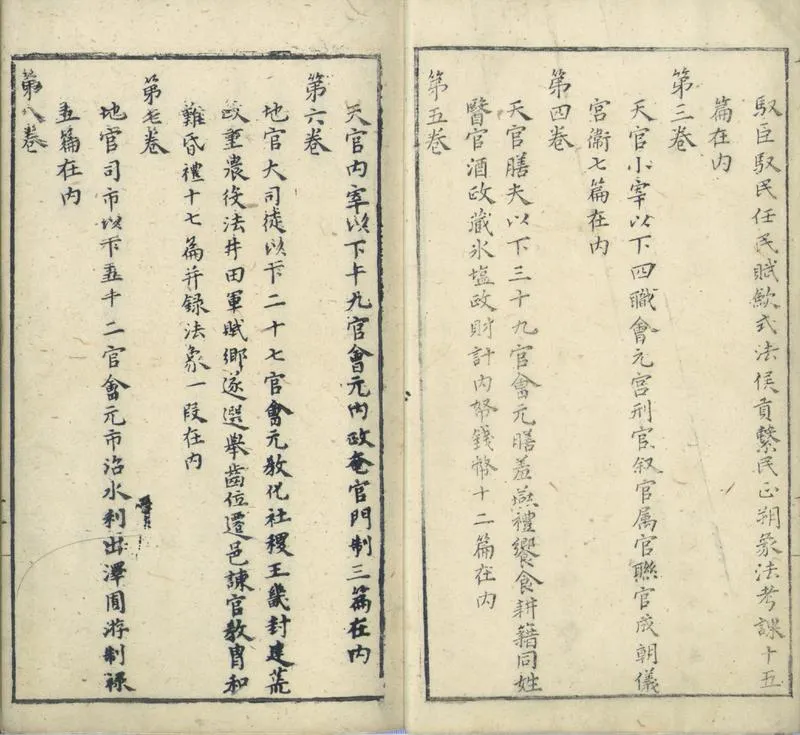 馭臣馭民任民賦歛式法侯貢繫民正朔象法考課十五
篇在内
第三卷
天官小宰以下四職會元宫刑官叙官属官聯官成朝儀
宫衛七篇在内
第四卷
天官膳夫以下三十九官會元膳羞燕禮饗食耕籍同姓
醫官酒政藏氷塩政財計内帑錢幣十二篇在内
第五卷
天官内宰以下十九官會元内政奄官門制三篇在内
第六卷
地官大司徒以下二十七官會元教化社稷王畿封建荒
政重農役法井田軍賦鄉遂選舉齒位遷邑諫官教胄和
難昏禮十七篇并録法象一段在内
第七卷
地官司市以下五十二官會元市治水利山澤囿游制祿
五篇在内
第八卷